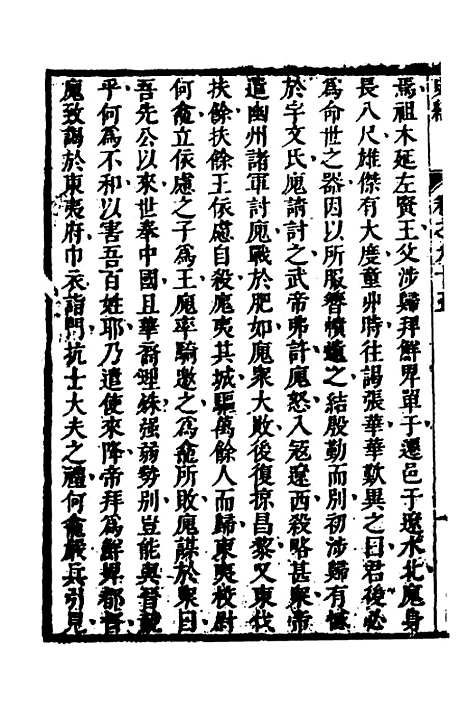 焉祖木延左賢王父涉歸拜鮮畀單于遷邑于遼水北廆身
長八尺雄傑有大度童丱時往謁張華華歎異之曰君後必
爲命世之器因以所服簪幘遺之結殷勤而別初涉歸有憾
於宇文氏廆請討之武帝弗許廆怒入寇遼西殺略甚衆帝
遣幽州諸軍討廆戰於肥如廆衆大敗後復掠昌黎又東伐
扶餘扶餘王依慮自殺廆夷其城驅萬餘人而歸東夷校尉
何龕立依慮之子爲王廆率騎邀之爲龕所敗廆謀於衆曰
吾先公以來世奉中國且華裔理殊强弱勢別豈能與晉競
乎何爲不和以害吾百姓耶乃遣使來降帝拜爲鮮畀都督
廆致謁於東夷府巾衣詣門抗士大夫之禮何龕嚴兵引見